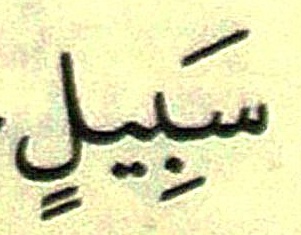 سَبِيلٍ